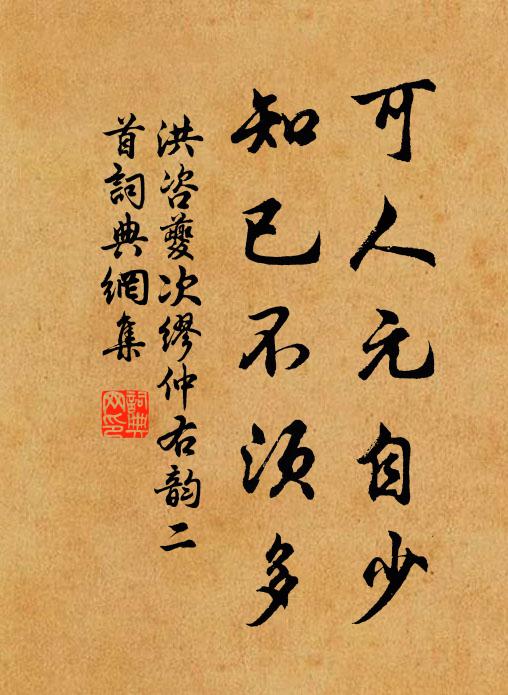 可人元自少
知己不须多
洪咨夔次繆仲右韵二
首詞典網集
詞典
网印